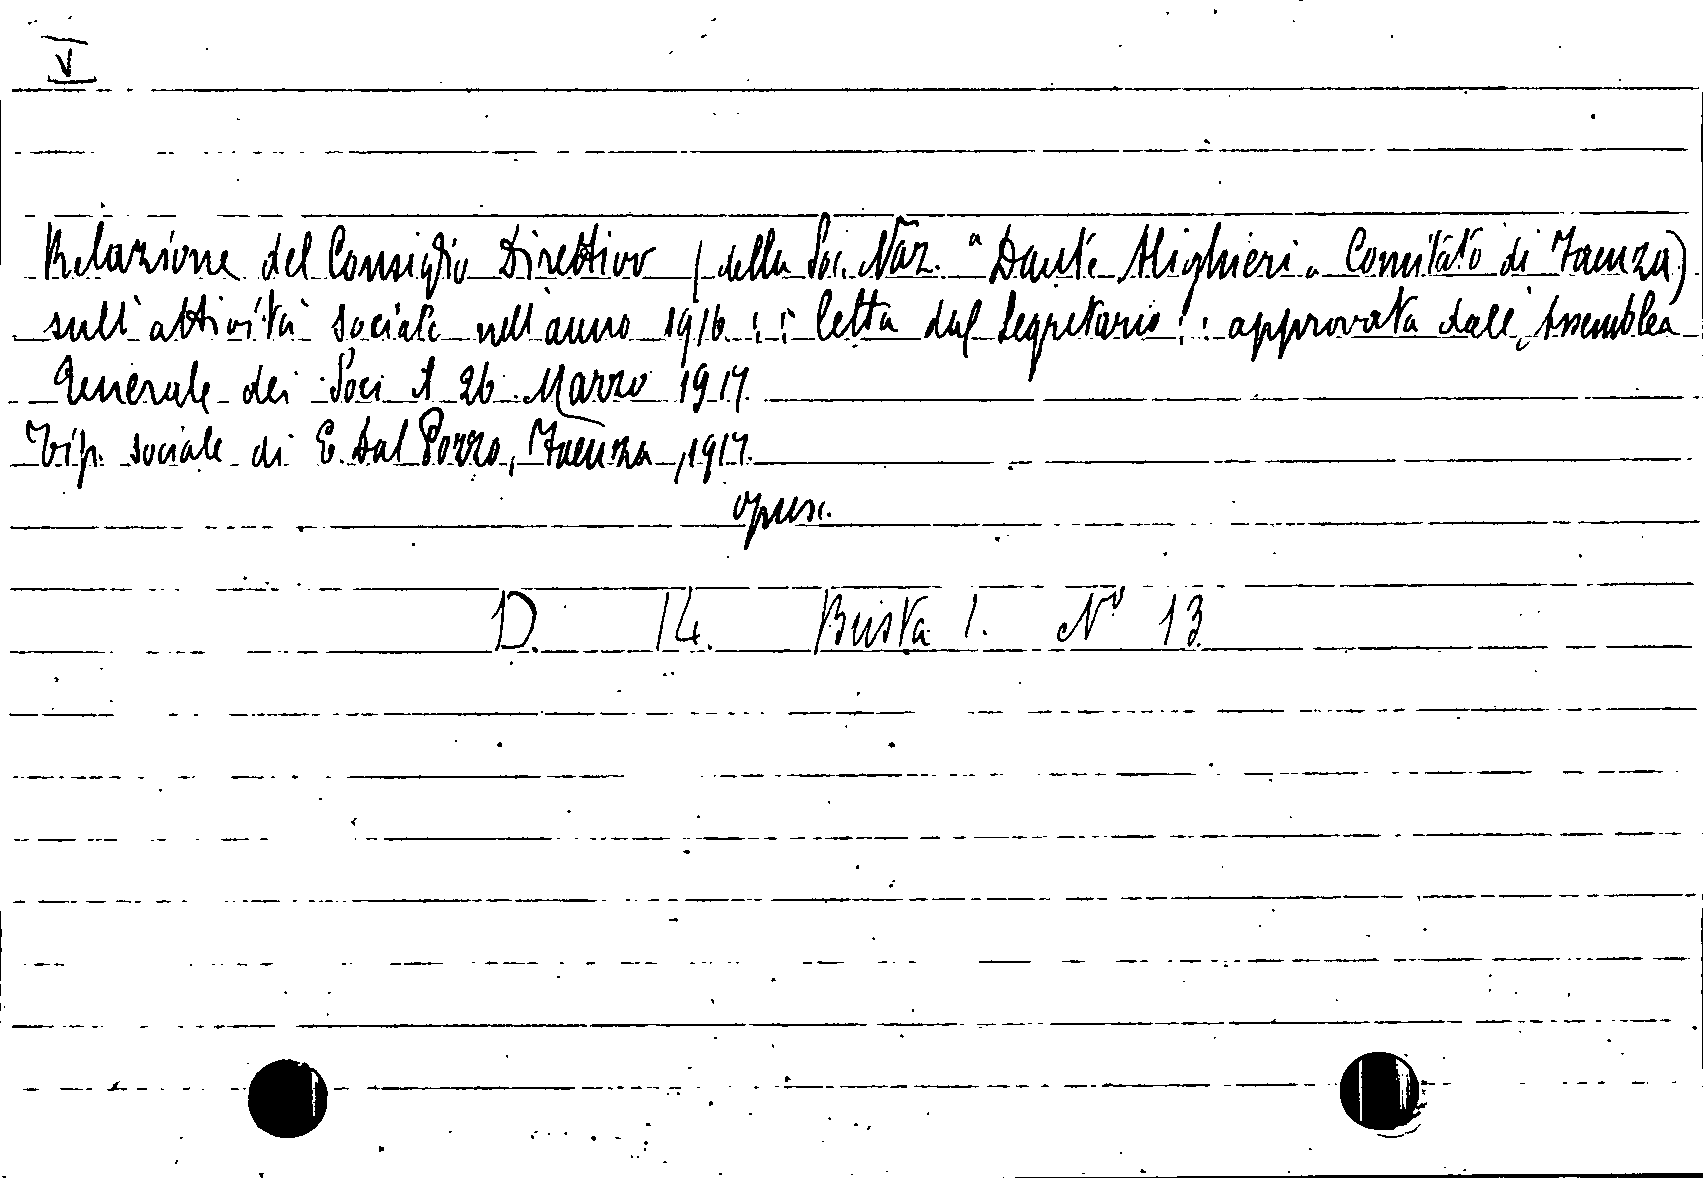 V
Relazione del Consiglio Direttivo (della Soc. Naz. "Dante Alighieri" Comitato di Faenza)
sull'attività sociale nell'anno 1916 :: letta dal Segretario :: approvata dall'Assemblea
Generale dei Soci il 26 Marzo 1917.
Tip. sociale di E. Dal Pozzo, Faenza, 1917.
opusc.
D. 14. Busta 1. N° 13.